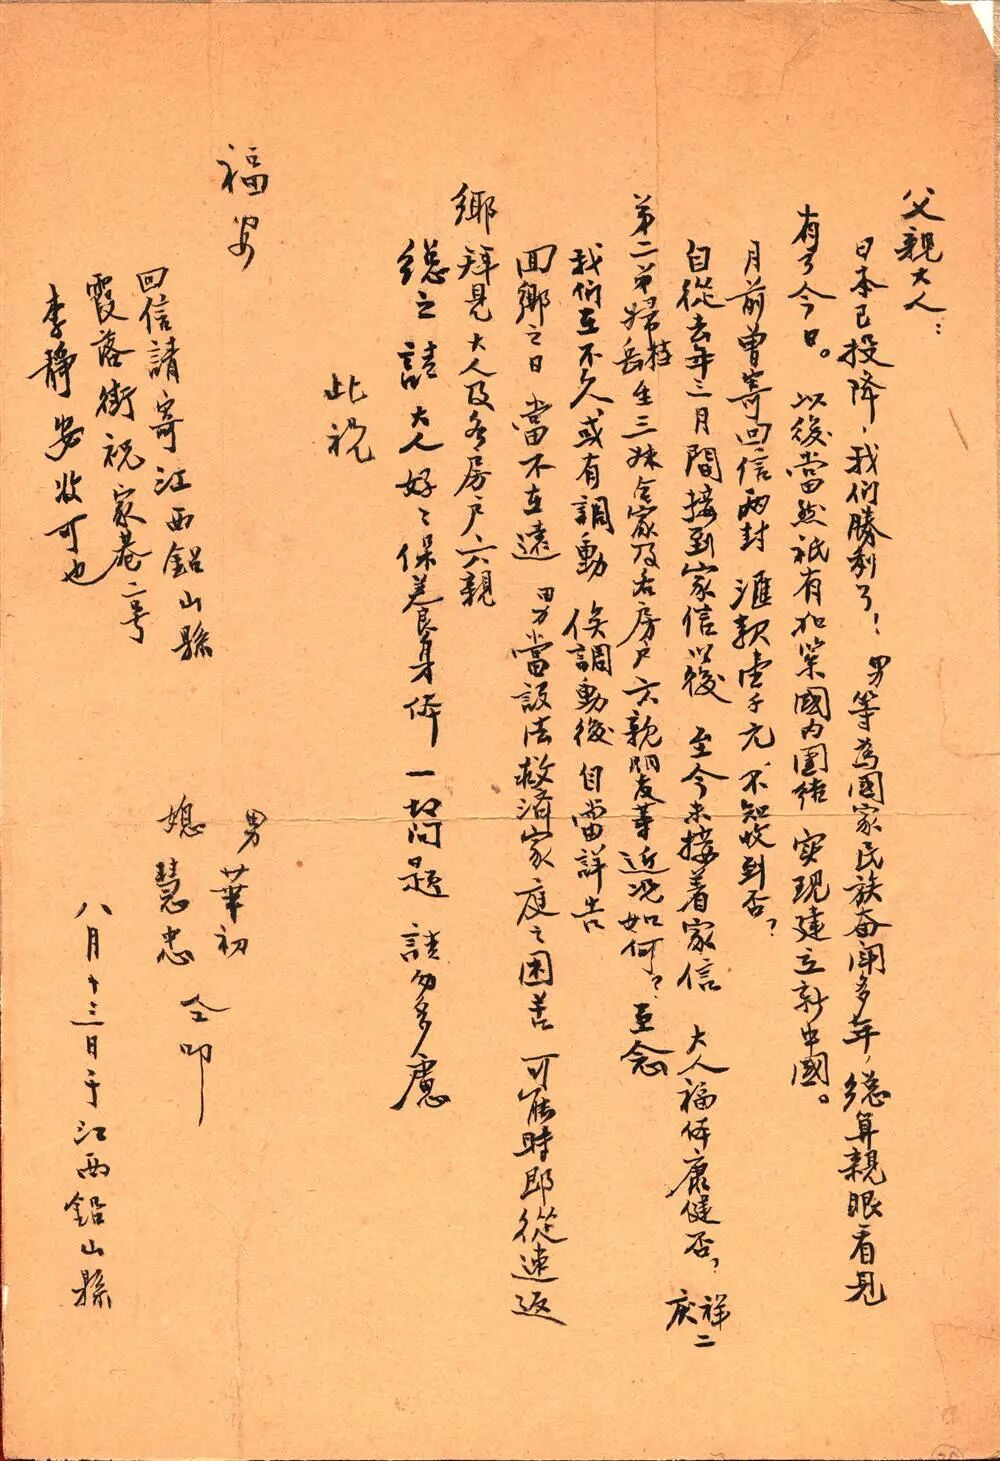 父親大人：
日本已投降，我们勝利了！男等為國家民族奋闹多年，總算親眼看見
有了今日。以後當然祇有加紧國内團结 实现建立新中國。
月前曾寄回信两封 滙款壹千元 不知收到否？
自從去年三月間接到家信以後 至今未接着家信 大人福体康健否？祥二
庆
第二弟婦岳桂生三妹全家及各房户六親朋友等近况如何？至念
我们在不久或有調動 俟調動後自當詳告
回鄉之日當不在遠 男當設法救济家庭之困苦 可能時即從速返
鄉拜見大人及各房户六親
總之請大人好々保养良身体 一切问題 請勿多慮
此祝
福安
男 華初
媳 慧忠 仝叩
八月十三日于江西鉛山縣
回信請寄江西鉛山縣
霞落街祝家巷二号
李靜安收可也